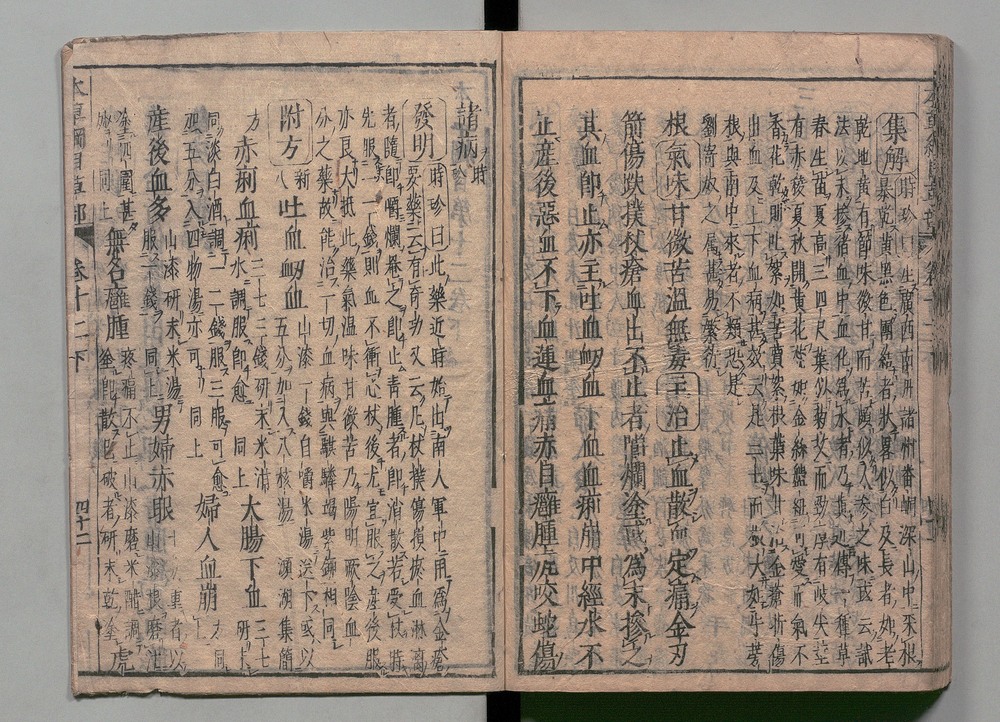 集解時珍曰生廣西南丹諸州番峒深山中采根
暴乾黃黑色團結者狀畧似白及長者如老
乾地黃有節味微甘而苦頗似人參之味或云試
法以末摻猪血中血化為水者乃真近傳一種草
春生苗夏高三四尺葉似菊艾而勁厚有岐尖莖
有赤稜夏秋開黃花蕊如金絲盤紐可愛而氣不
香花乾則吐絮如苦蕒絮根葉味甘治金瘡折傷
出血及上下血病甚效云是三七而根大如牛蒡
根與南中來者不類恐是
劉寄奴之屬甚易繁衍
根氣味甘微苦溫無毒主治止血散血定痛金刃
箭傷跌撲杖瘡血出不止者嚼爛塗或為末摻之
其血即止亦主吐血衂血下血血痢崩中經水不
止產後惡血不下血運血痛赤目癰腫虎咬蛇傷
諸病時珍
發明時珍曰此藥近時始出南人軍中用為金瘡
要藥云有奇功又云凡杖撲傷損瘀血淋漓
者隨即嚼爛罨之即止青腫者即消散若受杖時
先服一二錢則血不衝心杖後尤宜服之產後服
亦良大抵此藥氣溫味甘微苦乃陽明厥陰血
分之藥故能治一切血病與騏驎竭紫鉚相同
附方新八吐血衂血山漆一錢自嚼米湯送下或以五分加入八核湯瀕湖集簡
方赤痢血痢三七三錢研末米泔水調服即愈同上大腸下血三七研末
同淡白酒調一二錢服三服可愈加五分入四物湯亦可同上婦人血崩方同上
產後血多山漆研末米湯服一錢同上男婦赤眼十分重者以山漆根磨汁
塗四圍甚妙同上無名癰腫疼痛不止山漆磨米醋調塗即散已破者研末乾塗虎
本草綱目草部 卷十二下 四十二